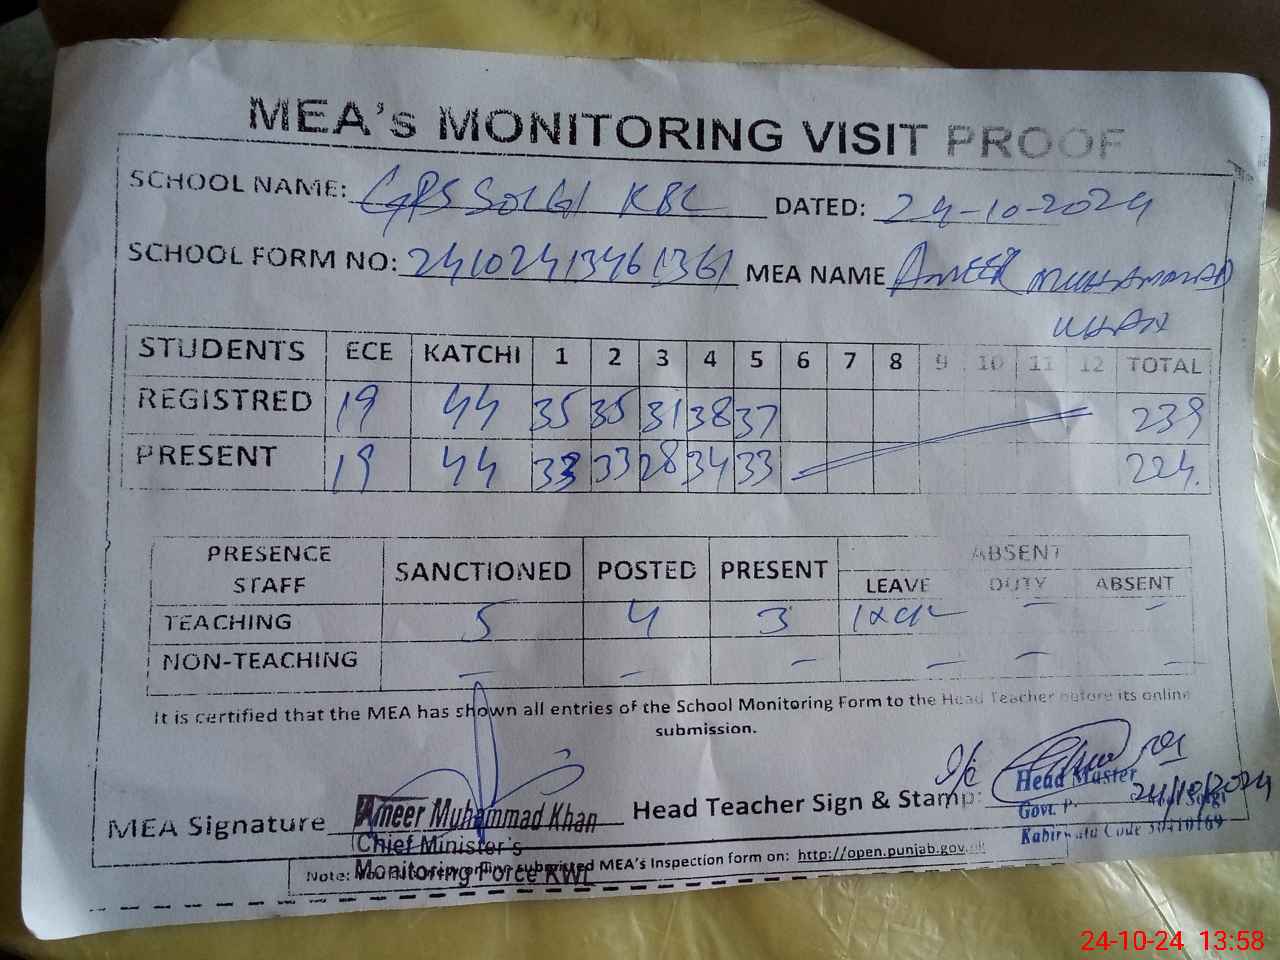 MEA's MONITORING VISIT PROOF
SCHOOL NAME: GPS SOLGI KBL DATED: 24-10-2024
SCHOOL FORM NO: 24102413461361 MEA NAME AMEER MUHAMMAD
KHAN
STUDENTS ECE KATCHI 1 2 3 4 5 6 7 8 9 10 11 12 TOTAL
REGISTRED 19 44 35 35 31 38 37 239
PRESENT 19 44 33 33 28 34 33 224.
PRESENCE STAFF SANCTIONED POSTED PRESENT ABSENT
LEAVE DUTY ABSENT
TEACHING 5 4 3 - -
NON-TEACHING - - - - - -
It is certified that the MEA has shown all entries of the School Monitoring Form to the Head Teacher before its online
submission.
MEA Signature Head Teacher Sign & Stamp: I/c
Ameer Muhammad Khan
Chief Minister's
Monitoring Force KWL
Head Master
Govt. P. Solgi
Kabirwala Code
24/10/2024
Note: submitted MEA's Inspection form on: http://open.punjab.gov.
24-10-24 13:58